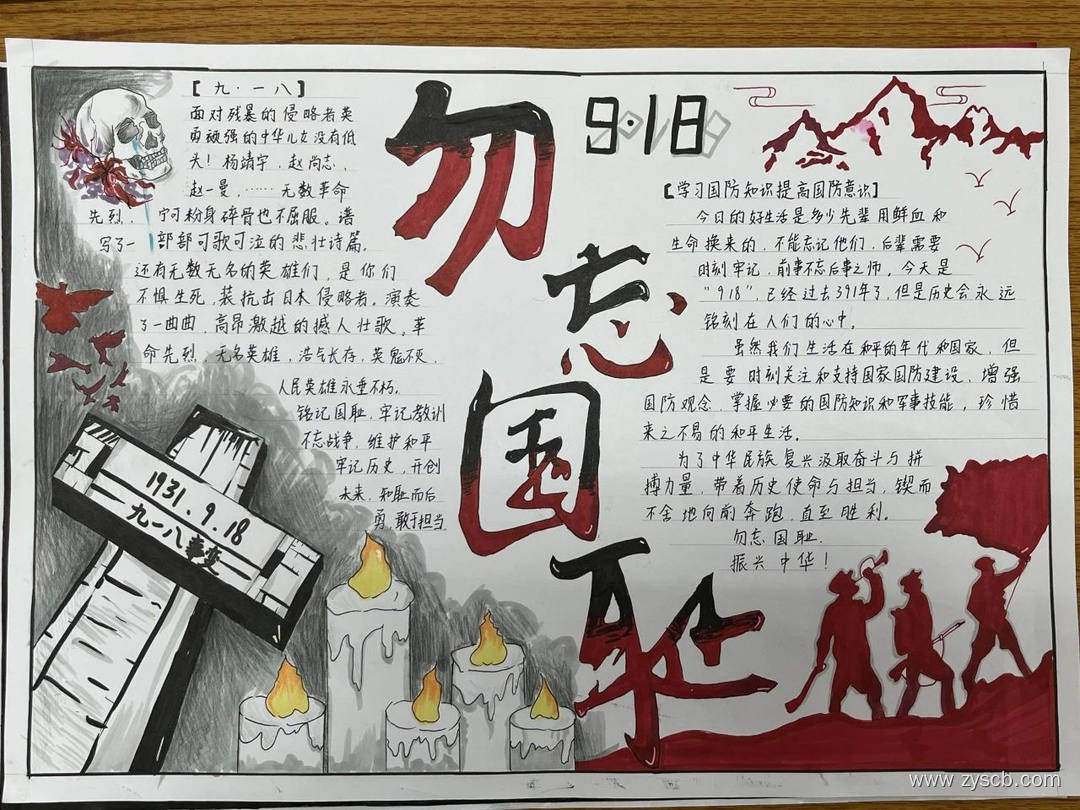 【九·一八】
面对残暴的侵略者英
勇硬强的中华儿女没有低
头！杨靖宇，赵尚志，
赵一曼，……无数革命
先烈，宁可粉身碎骨也不屈服。谱
写了一部部可歌可泣的悲壮诗篇。
还有无数无名的英雄们，是你们
不惧生死，英抗击日本侵略者。演奏
了一曲曲，高昂激越的撼人壮歌。革
命先烈，无名英雄，浩气长存，英魂不灭，
人民英雄永垂不朽。
铭记国耻，牢记教训
不忘战争，维护和平
牢记历史，开创
未来，知耻而后
勇，敢于担当
1931.9.18
九一八事变
勿忘国耻
9·18
【学习国防知识提高国防意识】
今日的好生活是多少先辈用鲜血和
生命换来的，不能忘记他们，后辈需要
时刻牢记，前事不忘后事之师，今天是
“918”，已经过去391年了，但是历史会永远
铭刻在人们的心中。
虽然我们生活在和平的年代和国家，但
是要时刻关注和支持国家国防建设，增强
国防观念，掌握必要的国防知识和军事技能，珍惜
来之不易的和平生活。
为了中华民族复兴汲取奋斗与拼
搏力量，带着历史使命与担当，锲而
不舍地向前奔跑，直至胜利。
勿忘国耻，
振兴中华！
www.zyscb.com